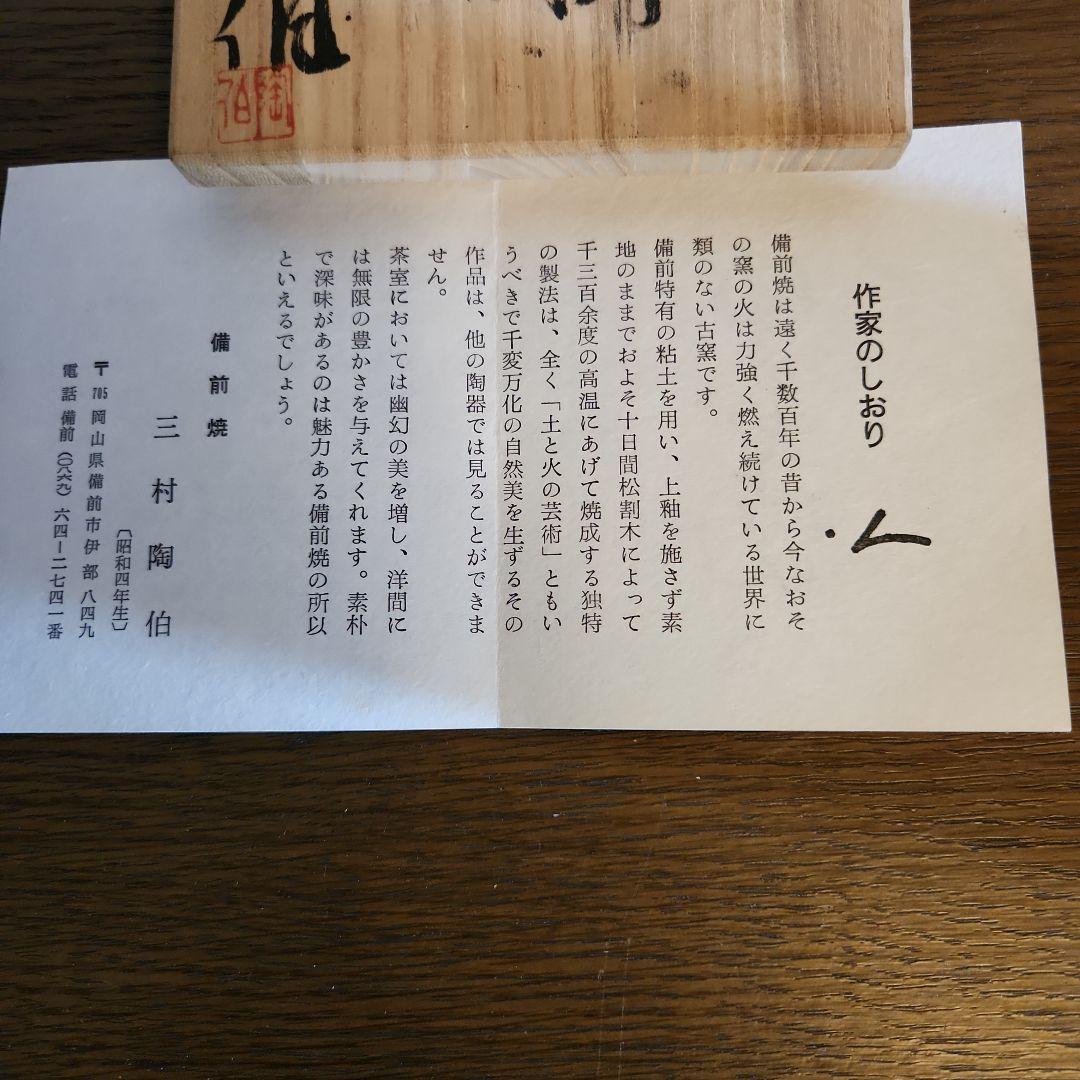 伯
陶伯
作家のしおり
備前焼は遠く千数百年の昔から今なおそ
の窯の火は力強く燃え続けている世界に
類のない古窯です。
備前特有の粘土を用い、上釉を施さず素
地のままでおよそ十日間松割木によって
千三百余度の高温にあげて焼成する独特
の製法は、全く「土と火の芸術」ともい
うべきで千変万化の自然美を生ずるその
作品は、他の陶器では見ることができま
せん。
茶室においては幽幻の美を増し、洋間に
は無限の豊かさを与えてくれます。素朴
で深味があるのは魅力ある備前焼の所以
といえるでしょう。
備前焼
三村陶伯
〔昭和四年生〕
〒705 岡山県備前市伊部八四九
電話 備前(〇八六九)六四ー二七四一番